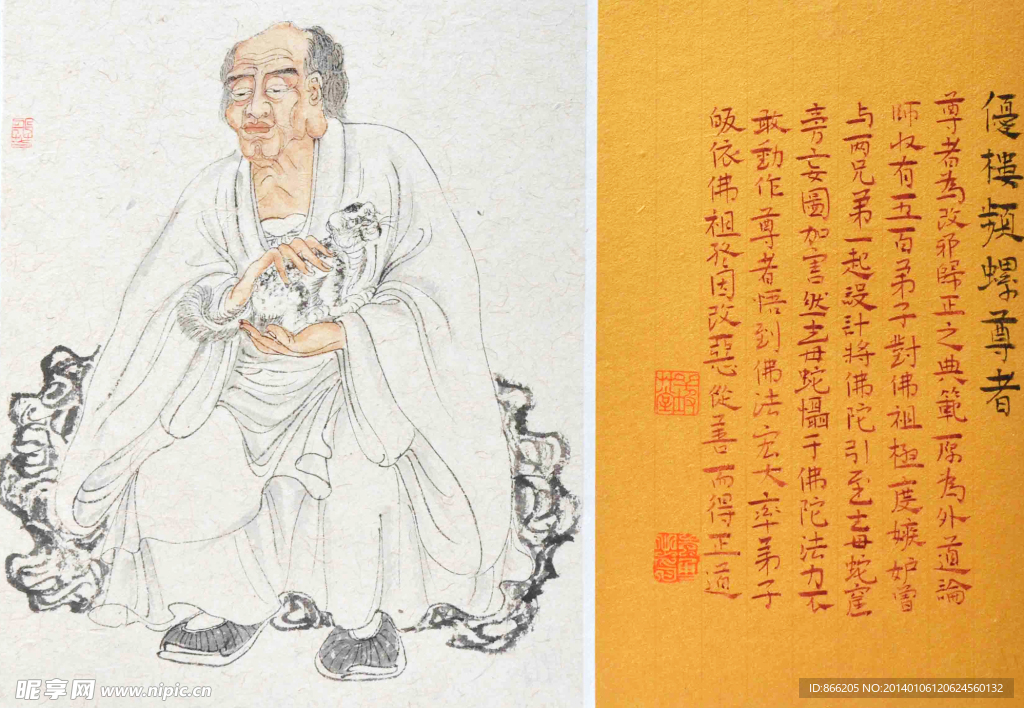 優樓頻螺尊者
尊者為改邪歸正之典範原為外道論
師收有五百弟子對佛祖極度嫉妒曾
与兩兄弟一起設計將佛陀引至毒蛇窟
旁妄圖加害然毒蛇懾于佛陀法力不
敢動作尊者悟到佛法宏大率弟子
皈依佛祖終因改惡從善而得正道
昵享网 www.nipic.cn
ID:866205 NO:20140106120624560132